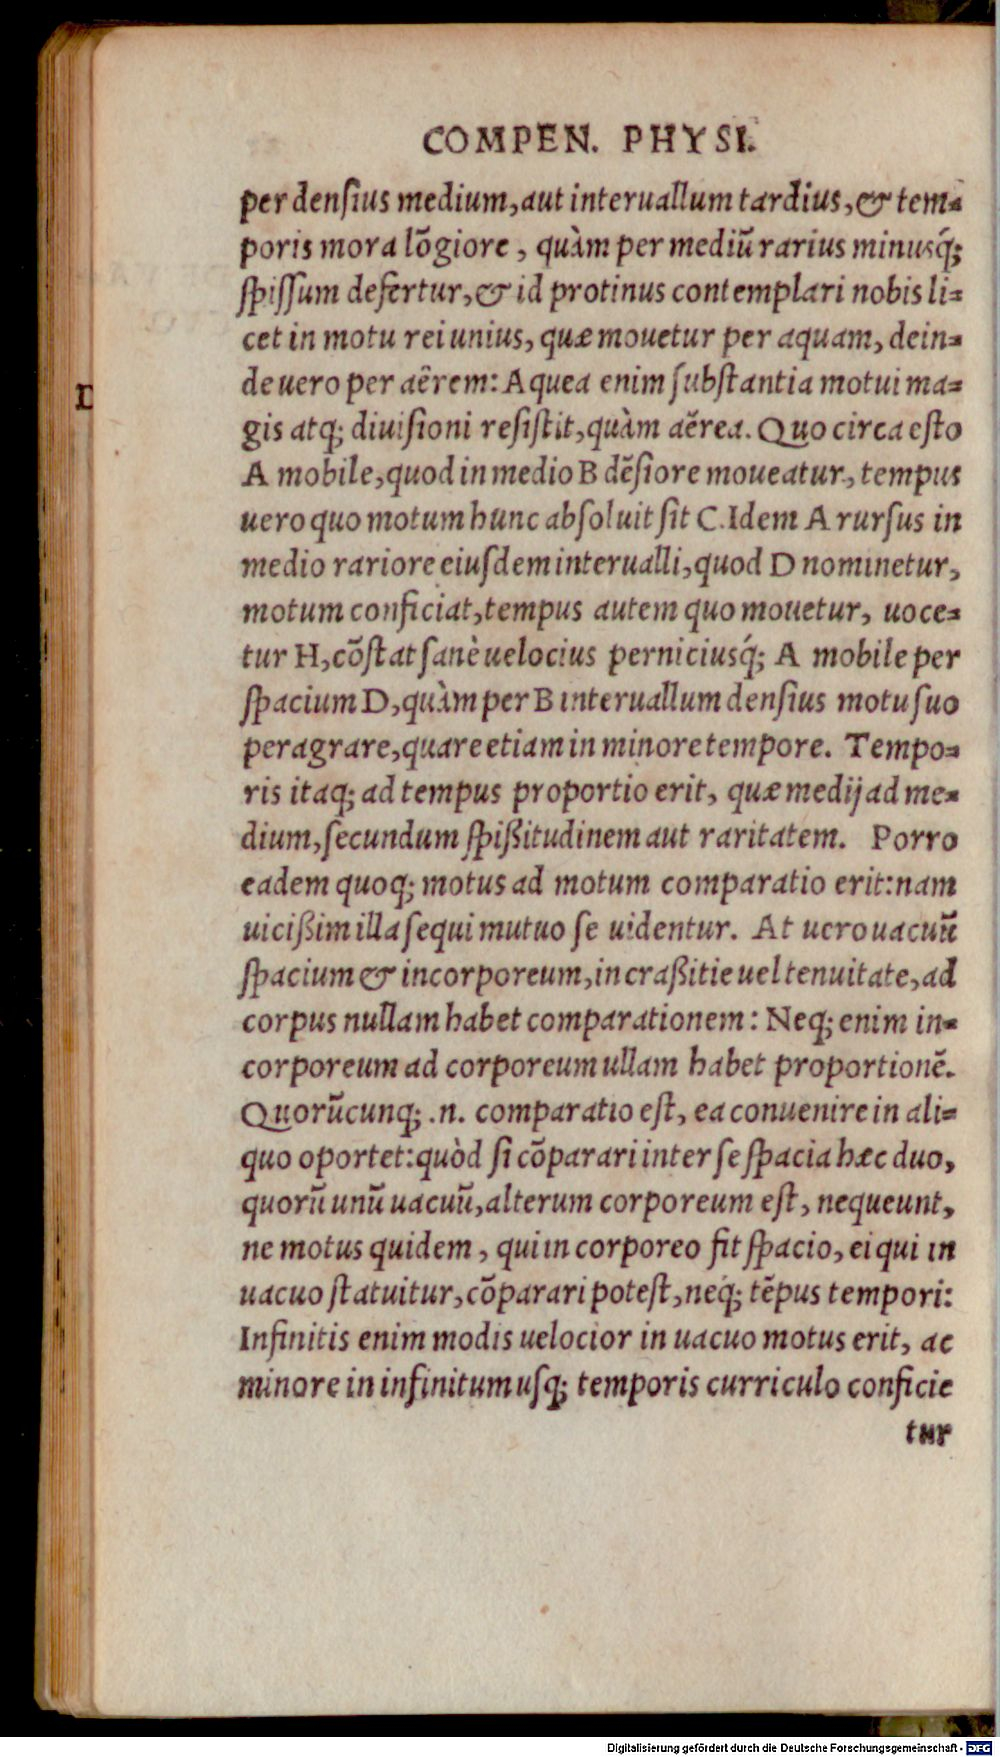 COMPEN. PHYSI.
per densius medium, aut interuallum tardius, & tem-
poris mora lōgiore, quàm per mediū rarius minusq́;
spissum defertur, & id protinus contemplari nobis li-
cet in motu rei unius, quæ mouetur per aquam, dein-
de uero per aërem: Aquea enim substantia motui ma-
gis atq; diuisioni resistit, quàm aërea. Quo circa esto
A mobile, quod in medio B dēsiore moueatur, tempus
uero quo motum hunc absoluit sit C. Idem A rursus in
medio rariore eiusdem interualli, quod D nominetur,
motum conficiat, tempus autem quo mouetur, uoce-
tur H, cōstat sanè uelocius perniciusq́; A mobile per
spacium D, quàm per B interuallum densius motu suo
peragrare, quare etiam in minore tempore. Tempo-
ris itaq; ad tempus proportio erit, quæ medij ad me-
dium, secundum spißitudinem aut raritatem. Porro
eadem quoq; motus ad motum comparatio erit: nam
uicißim illa sequi mutuo se uidentur. At uero uacuū
spacium & incorporeum, in craßitie uel tenuitate, ad
corpus nullam habet comparationem: Neq; enim in-
corporeum ad corporeum ullam habet proportionē.
Quorūcunq; .n. comparatio est, ea conuenire in ali-
quo oportet: quòd si cōparari inter se spacia hæc duo,
quorū unū uacuū, alterum corporeum est, nequeunt,
ne motus quidem, qui in corporeo fit spacio, ei qui in
uacuo statuitur, cōparari potest, neq́; tēpus tempori:
Infinitis enim modis uelocior in uacuo motus erit, ac
minore in infinitum usq; temporis curriculo conficie
tur
Digitalisierung gefördert durch die Deutsche Forschungsgemeinschaft - DFG